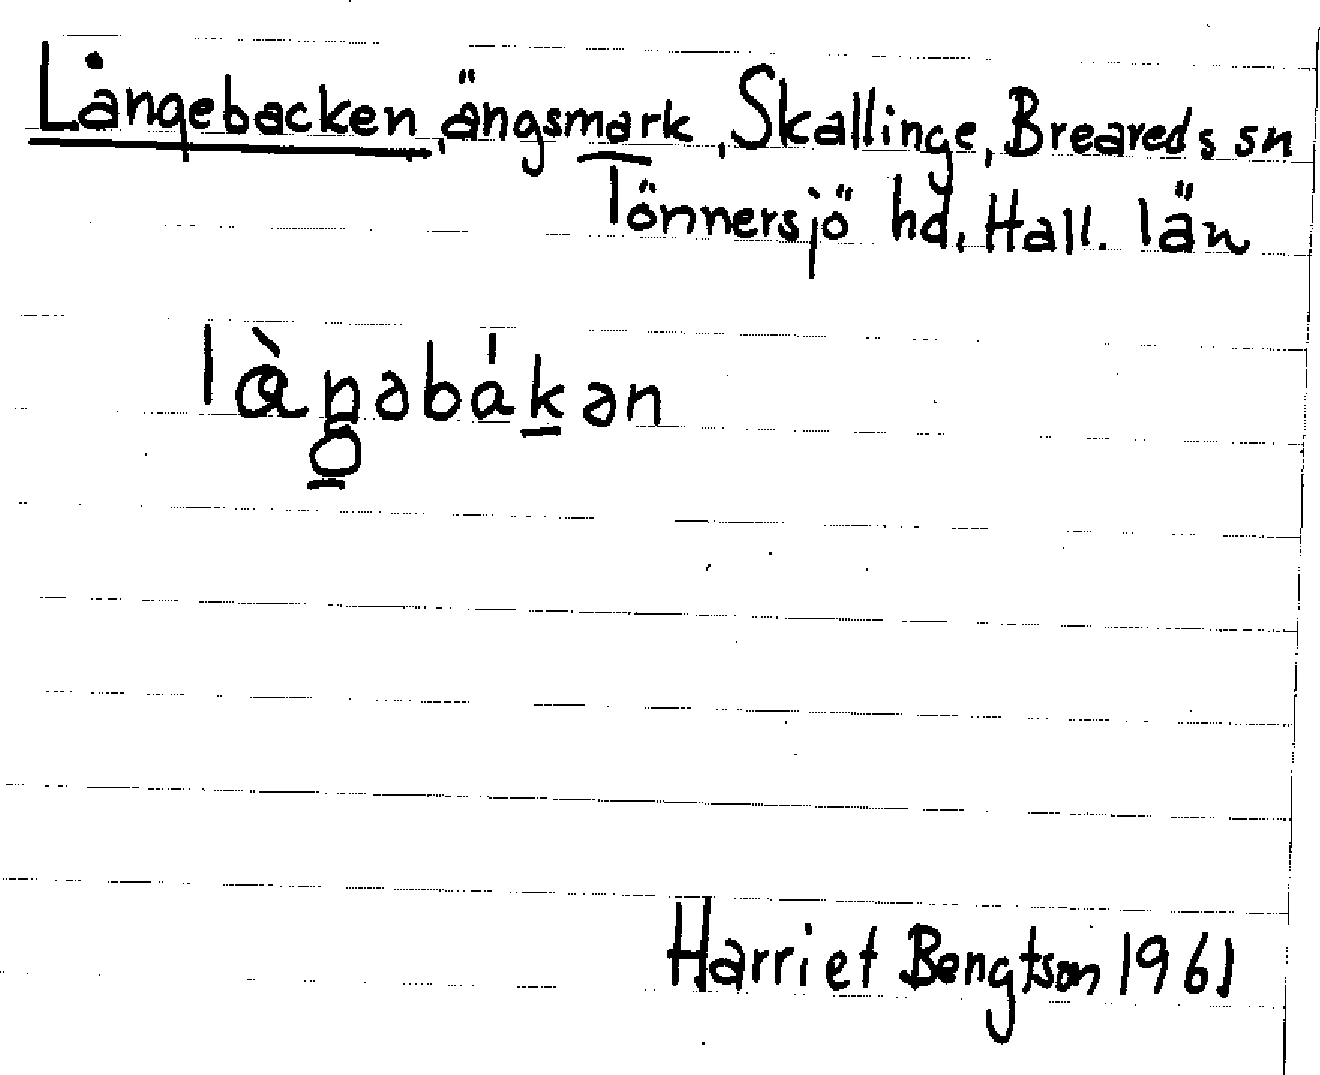 Långebacken, ängsmark, Skallinge, Breareds sn
Tönnersjö hd, Hall. län
Harriet Bengtson 1961